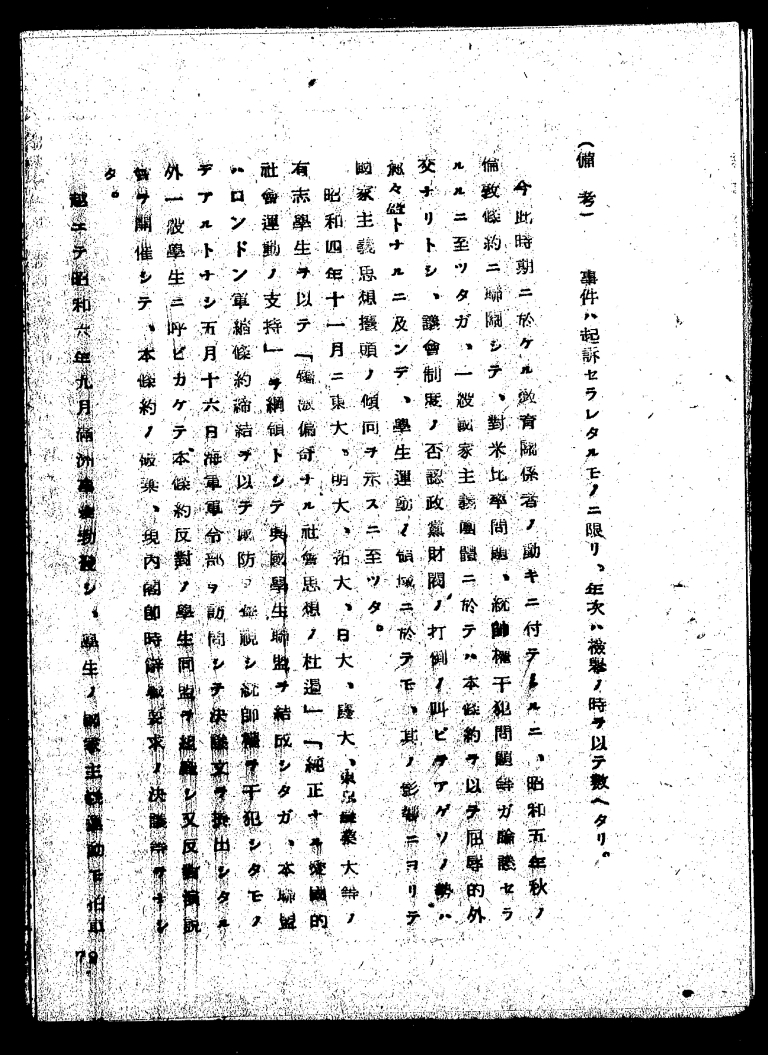 (備考) 事件ハ起訴セラレタルモノニ限リ、年次ハ檢擧ノ時ヲ以テ數ヘタリ。
今此時期ニ於ケル敎育關係者ノ動キニ付テ見ルニ、昭和五年秋ノ
倫敦條約ニ聯關シテ、對米比率問題、統帥權干犯問題等ガ論議セラ
ルルニ至ツタガ、一般國家主義團體ニ於テハ本條約ヲ以テ屈辱的外
交ナリトシ、議會制度ノ否認政黨財閥ノ打倒ノ叫ビヲアゲソノ勢ハ
トナルニ及ンデ、學生運動ノ領域ニ於テモ、其ノ影響ニヨリテ
國家主義思想擡頭ノ傾向ヲ示スニ至ツタ。
昭和四年十一月ニ東大、明大、拓大、日大、農大、大等ノ
有志學生ヲ以テ「矯激偏奇ナル社會思想ノ杜遏」「純正ナル愛國的
社會運動ノ支持」ヲ綱領トシテ興國學生聯盟ヲ結成シタガ、本聯盟
ハロンドン軍縮條約締結ヲ以テ國防ヲ視シ統帥權ヲ干犯シタモノ
デアルトナシ五月十六日海軍軍令部ヲ訪問シテ決議文ヲ提出シタル
外一般學生ニ呼ビカケテ本條約反對ノ學生同盟ヲ組織シ又反對演說
會ヲ開催シテ、本條約ノ破棄、現內閣卽時辭職要求ノ決議等ヲナシ
タ。
越エテ昭和六年九月滿洲事變勃發シ、學生ノ國家主義運動モ
79